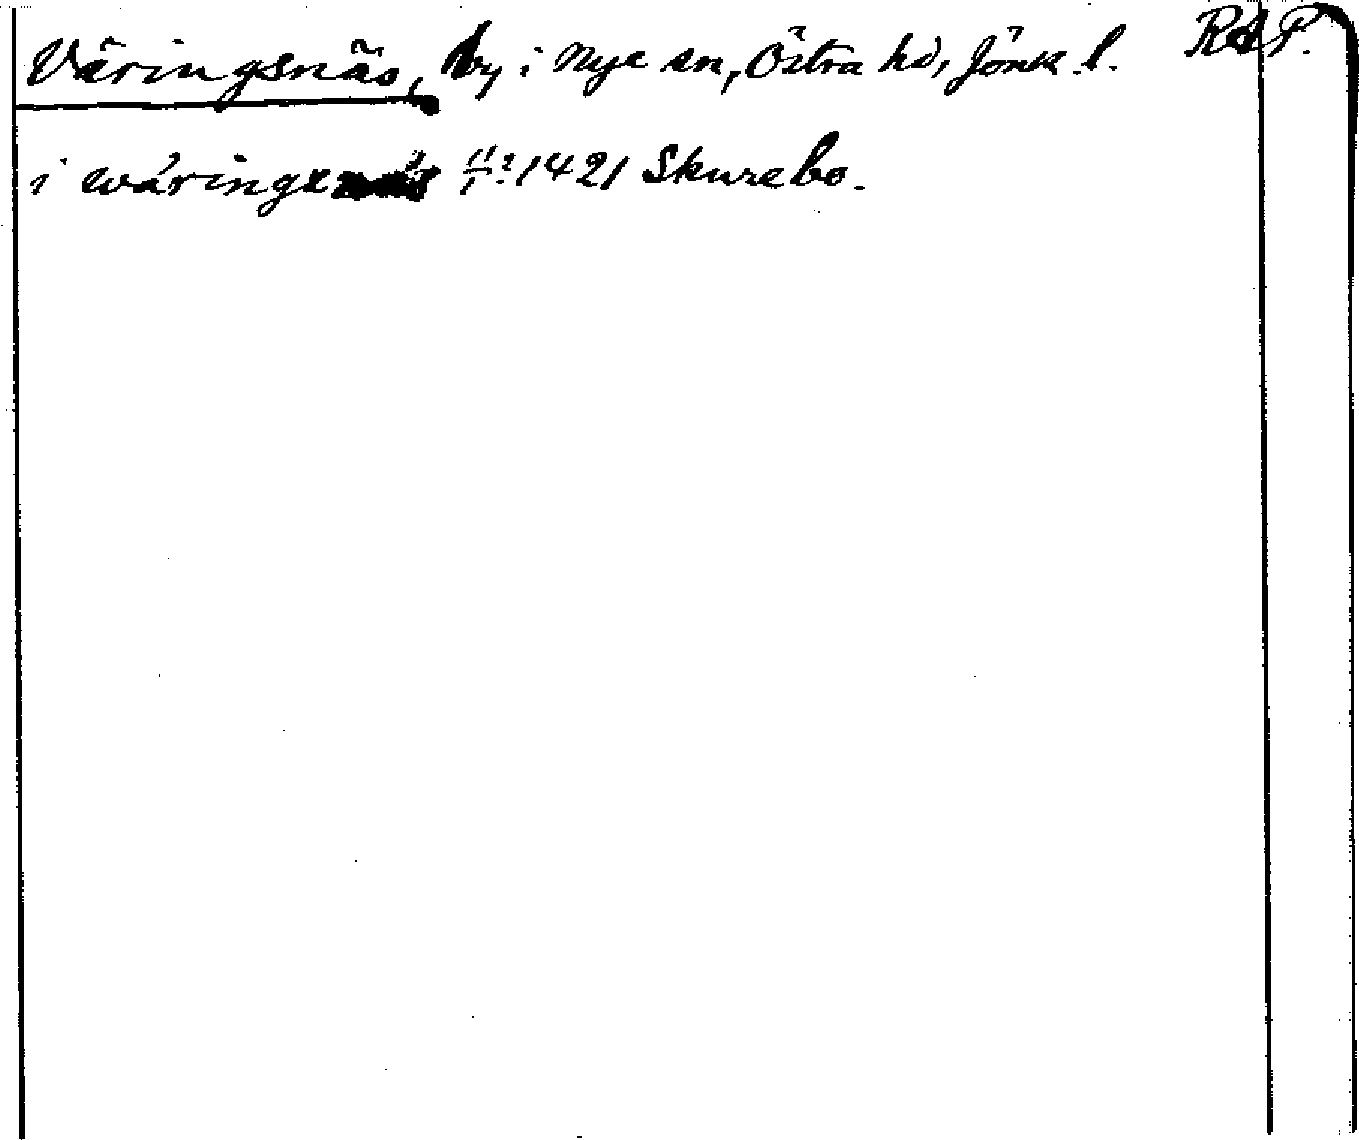 Väringsnäs, by i Nye sn, Östra hd, Jönk. l. RAP.
i wäringxnäs 11/1 1421 Skurebo.